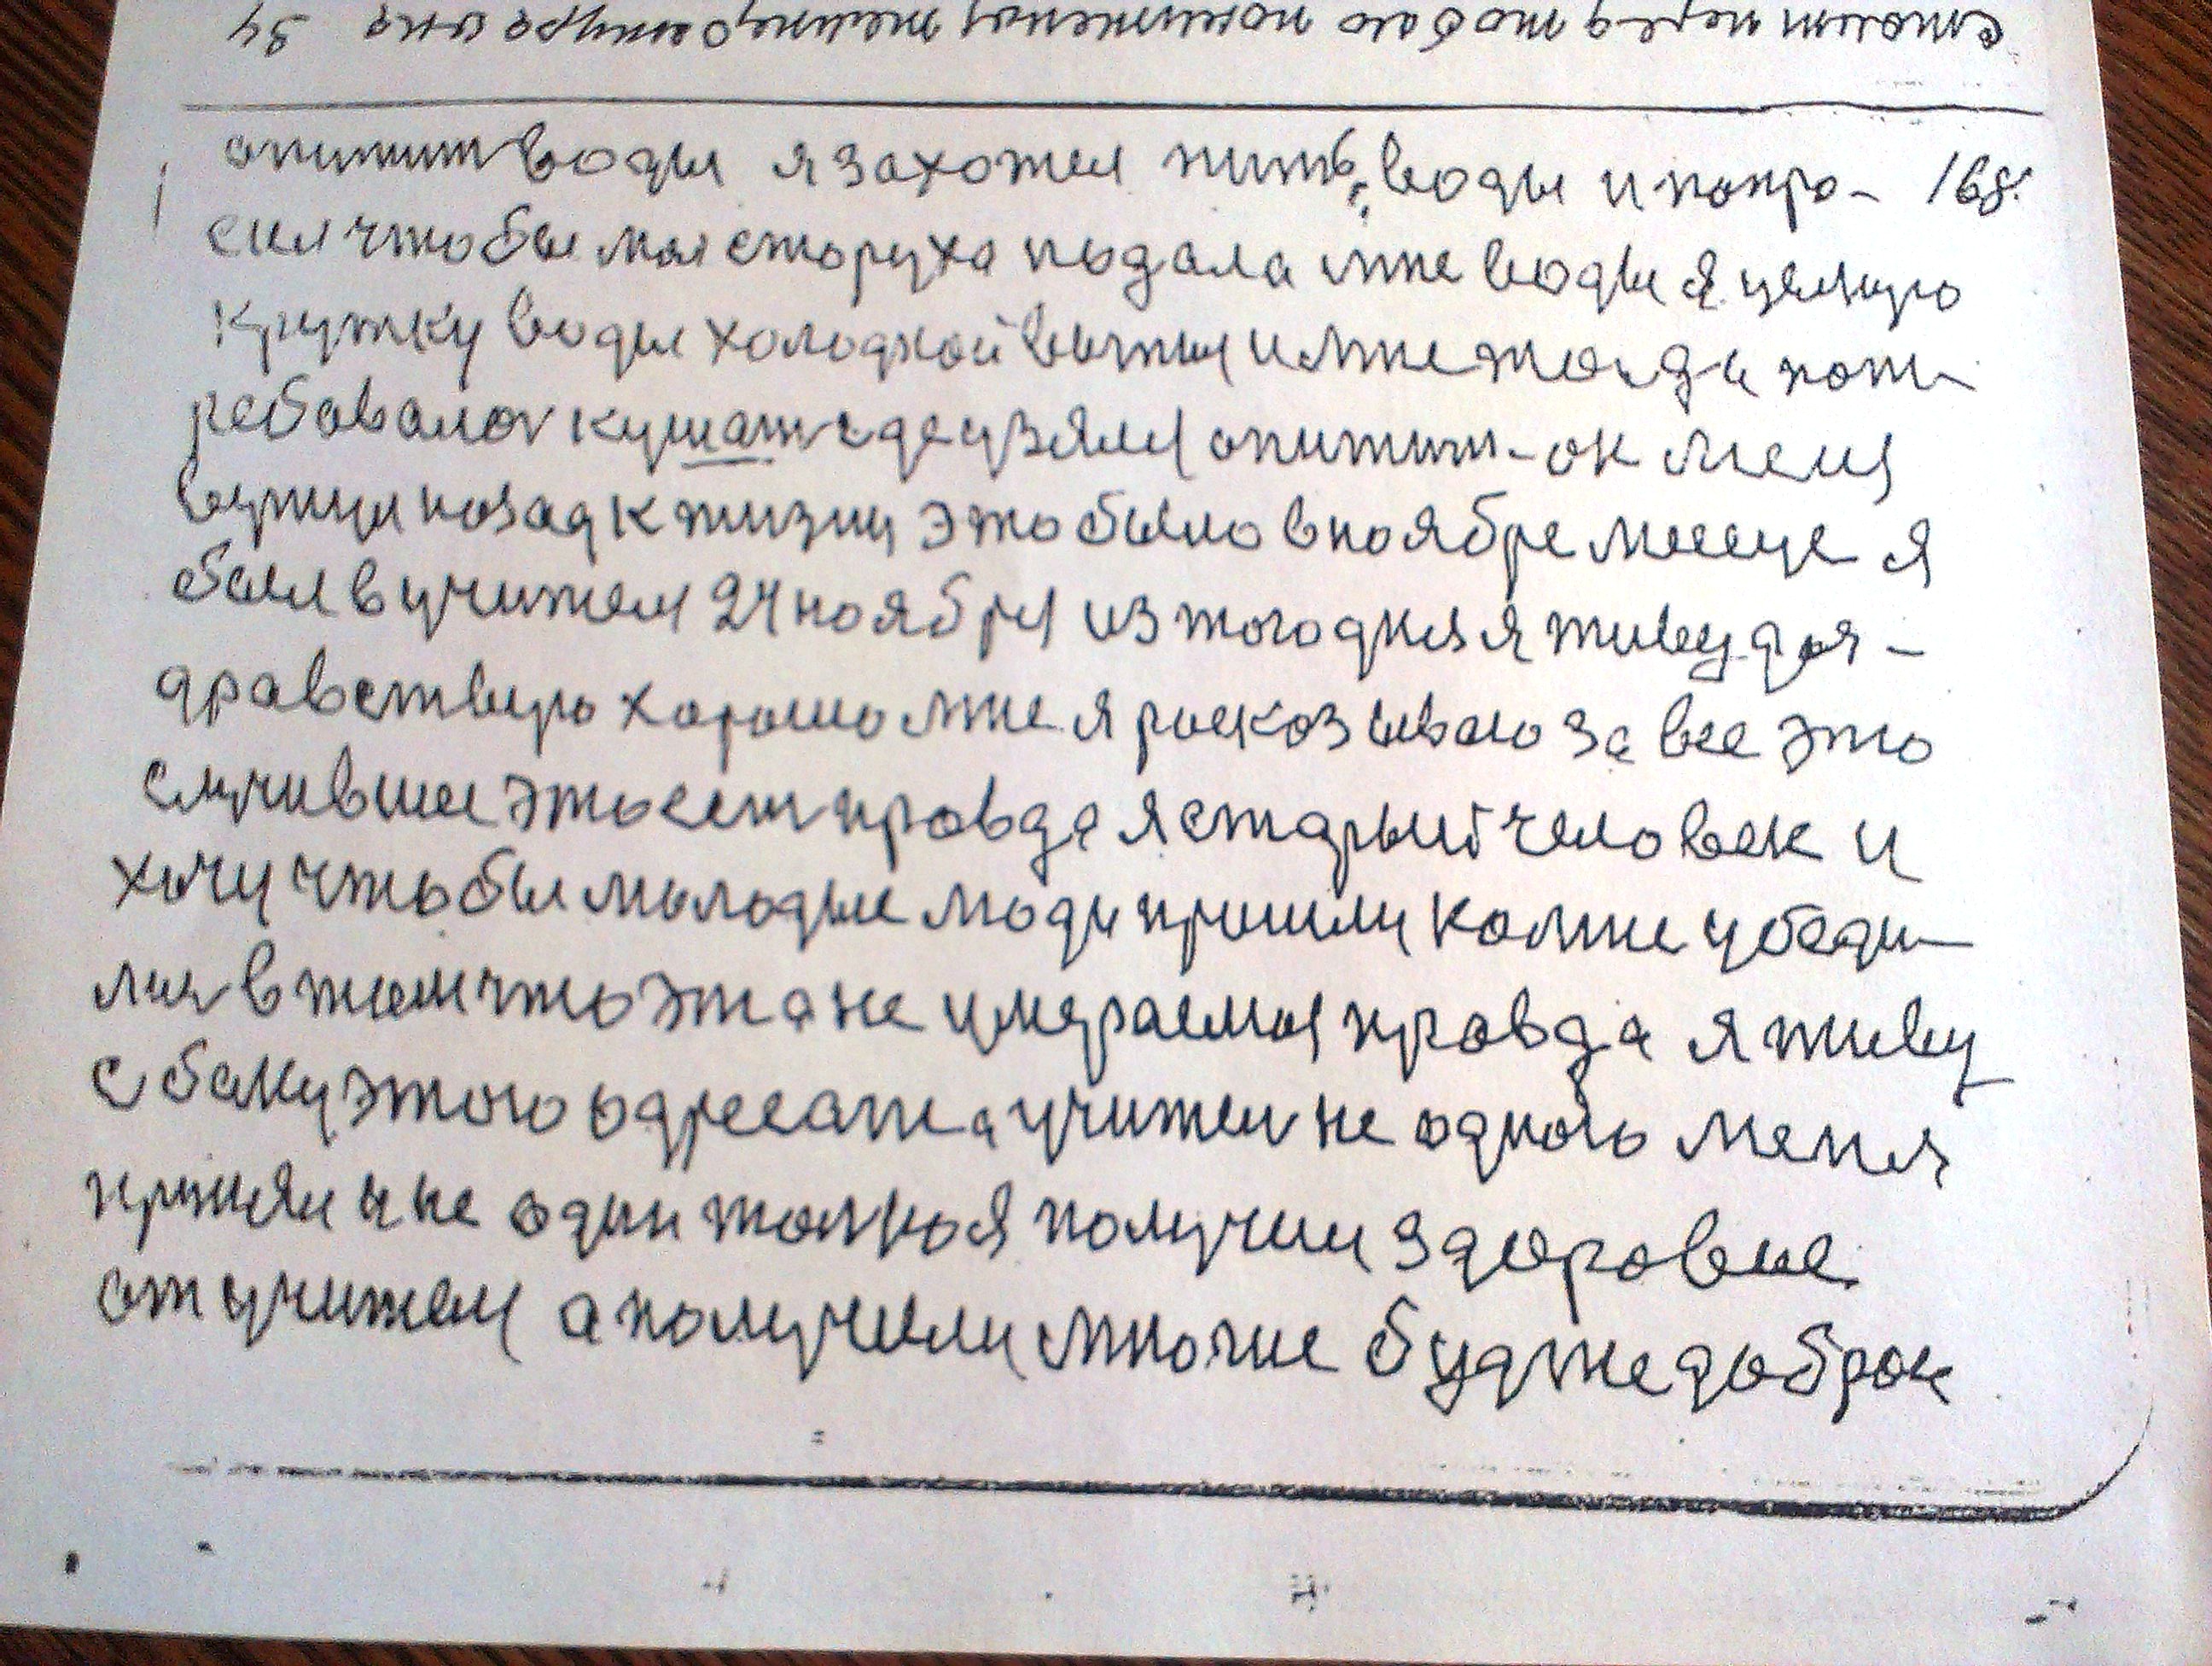 апитит воды я захотел пить воды и попро- 168.
сил чтобы моя старуха подала мне воды я целую
кружку воды холодной выпил и мне тогда пот-
ребовалос кушат где узялся апитит-он меня
вернул назад к жизни это было в ноябре месеце я
был в учителя 24 ноября из того дня я живу здо-
дравствую хорошо мне я расказываю за все это
случившее это ест правда я старый человек и
хочу чтобы молодые люди пришли ко мне убеди-
лис в том что эта не умераемая правда я живу
с баку этого адресата а учител не одного меня
принял и не один толко я получил здоровие
от учителя а получили многие будте добрые